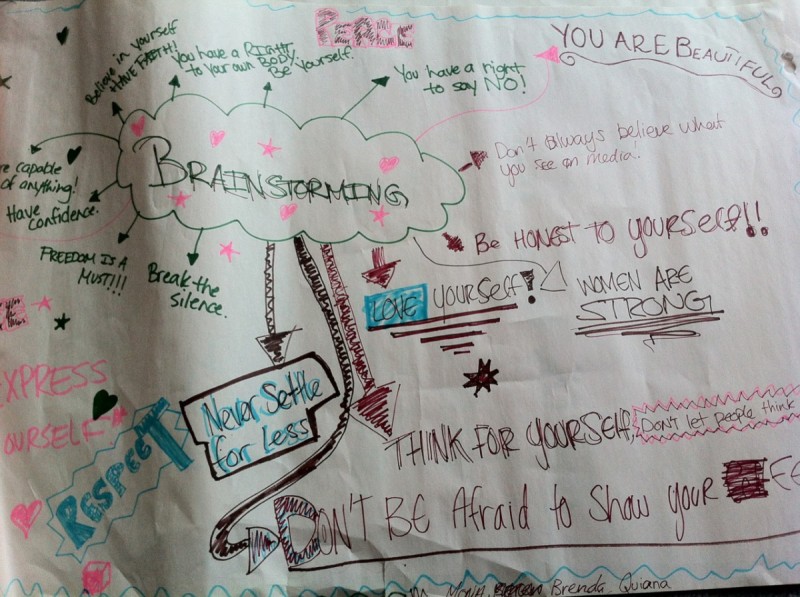 PEACE
YOU ARE BEAUTIFUL
Believe in yourself
HAVE FAITH!
You have a RIGHT
to your own BODY.
Be yourself.
You have a right
to say NO!
BRAINSTORMING
Don't always believe what
you see on media!
capable
of anything!
Have
confidence.
FREEDOM IS A
MUST!!!
Break the
silence.
Be HONEST TO yourself!!!
LOVE yourself!
WOMEN ARE
STRONG
EXPRESS
OURSELF
RESPECT
Never Settle
for Less
THINK FOR YOURSELF,
Don't let people think
DON'T BE Afraid to Show your
Brenda, Quiana